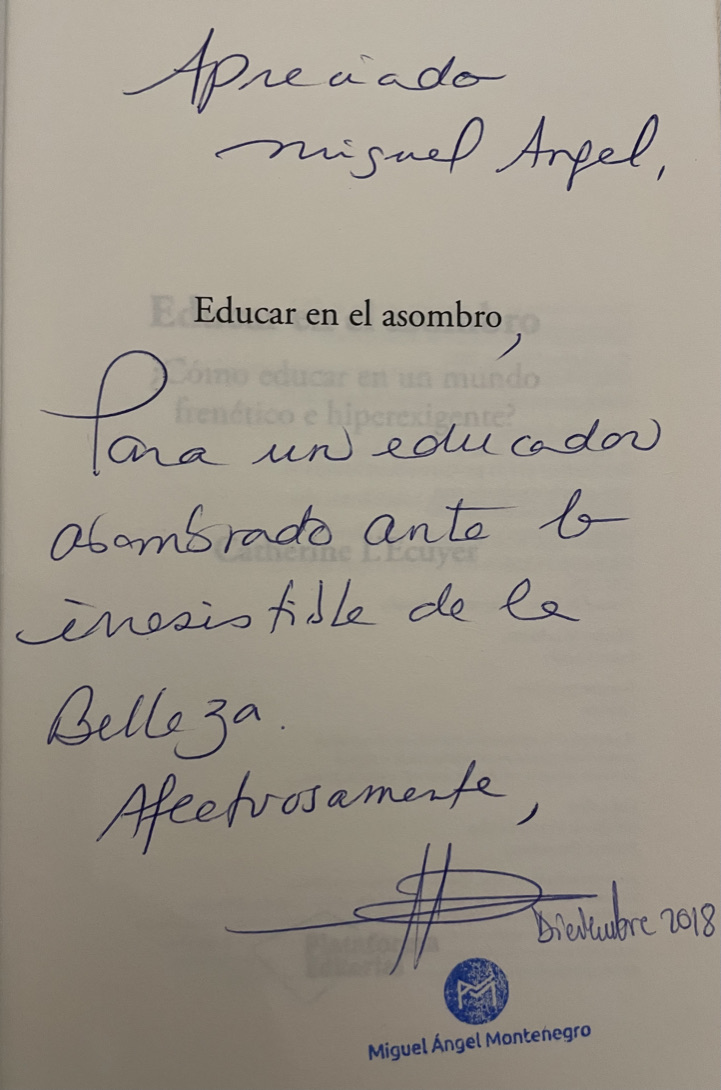 Apreciado
Miguel Angel,
Educar en el asombro,
Para un educador
asombrado ante lo
irresistible de la
Belleza.
Afectuosamente,
Diciembre 2018
Miguel Ángel Montenegro
Educar en el asombro
¿Cómo educar en un mundo
frenético e hiperexigente?
Catherine L'Ecuyer
Plataforma
Editorial